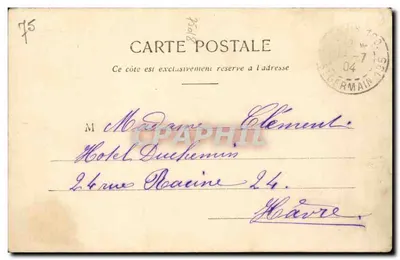 75
CARTE POSTALE
Ce côte est exclusivement reservé a l'adresse
-7
04
GERMAIN
M Madame Clément
CPAPHIL
Hotel Duchemin
24 rue Racine 24.
Hâvre.